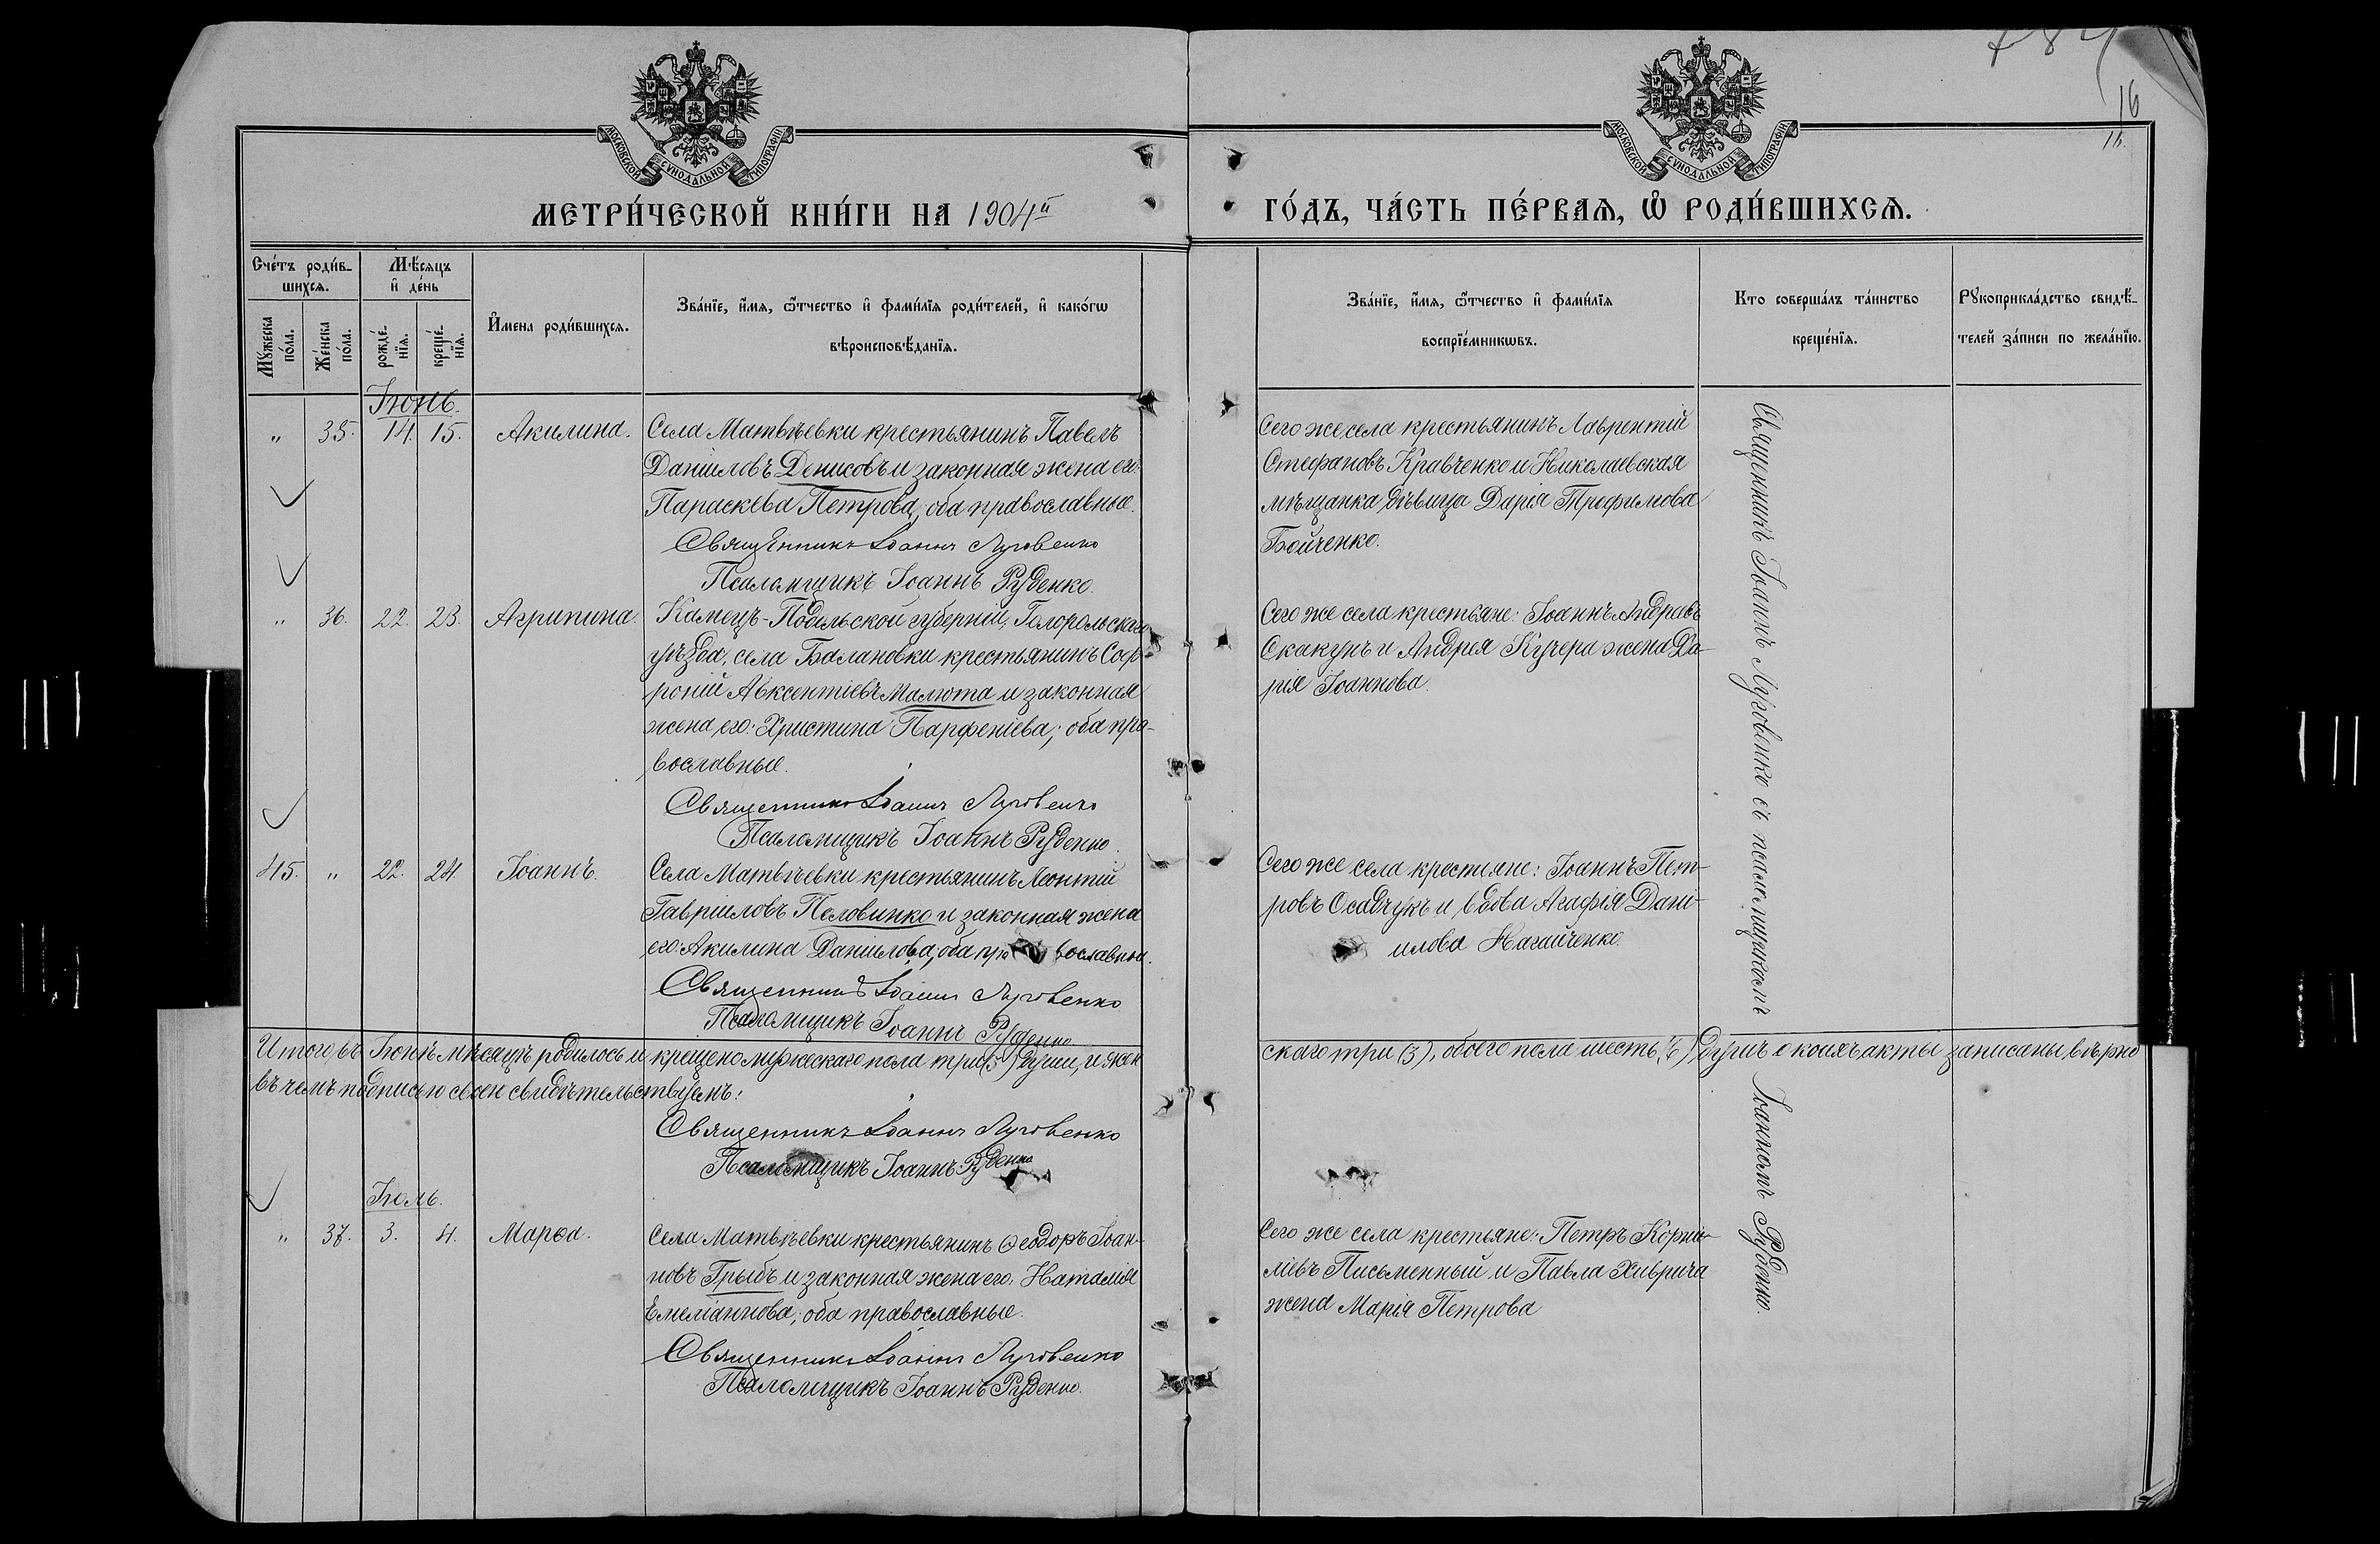 784
16
16.
МОСКОВСКОЙ СѴНОДАЛЬНОЙ ТИПОГРАФІИ
МОСКОВСКОЙ СѴНОДАЛЬНОЙ ТИПОГРАФІИ
МЕТРИ́ЧЕСКОЙ КНИ́ГИ НА 1904й
ГО́ДЪ, ЧА́СТЬ ПЕ́РВАѦ, Ѽ РОДИ́ВШИХСѦ.
Сче́тъ роди́в-
шихсѧ.
Мꙋ́жеска по́ла.
Же́нска по́ла.
Мѣ́сѧцъ
и҆ де́нь
рожде́-
нїѧ.
креще́-
нїѧ.
И҆мена роди́вшихсѧ.
Зва́нїе, и҆́мѧ, ѻ҆́тчество и҆ фами́лїѧ роди́телей, и҆ како́гѡ
вѣроисповѣ́данїѧ.
Зва́нїе, и҆́мѧ, ѻ҆́тчество и҆ фами́лїѧ
воспрїе́мникѡвъ.
Кто соверша́лъ та́инство
креще́нїѧ.
Рꙋкоприкла́дство свидѣ́-
телей за́писи по жела́нїю.
Іюнь.
„ 35. 14. 15. Акилина. Села Матвѣевки крестьянинъ Павелъ
Даніиловъ Денисовъ и законная жена его:
Параскева Петрова, оба православные.
Священникъ Іоаннъ Луговенко
Псаломщикъ Іоаннъ Руденко.
Сего же села крестьянинъ Лаврентій
Стефановъ Кравченко и Николаевская
мѣщанка, дѣвица Дарія Трофимова
Бойченко.
„ 36. 22. 23. Агрипина. Камец-Подольской губерніи,
уѣзда, села Балановки крестьянинъ Соф-
роній Авксентіевъ Малюта и законная
жена его: Христина Парфеніева; оба пра-
вославные.
Священникъ Іоаннъ Луговенко
Псаломщикъ Іоаннъ Руденко.
Сего же села крестьяне: Іоаннъ Андреевъ
Скакунъ и Андрея Кучера жена Да-
рія Іоаннова.
45. „ 22. 24. Іоаннъ. Села Матвѣевки крестьянинъ Леонтій
Гавріиловъ Половинко и законная жена
его: Акилина Даніилова, оба православные.
Священникъ Іоаннъ Луговенко
Псаломщикъ Іоаннъ Руденко
Сего же села крестьяне: Іоаннъ Пет-
ровъ Осадчукъ и вдова Агафія Дані-
илова Нагайченко.
Итого въ Іюнѣ мѣсяцѣ родилось и крещено мужескаго пола три (3) души, и жен
скаго три (3), обоего пола шесть (6) душъ о коихъ акты записаны вѣрно
въ чемъ подписью своею свидѣтельствуемъ:
Священникъ Іоаннъ Луговенко
Псаломщикъ Іоаннъ Руденко
Іюль.
„ 37. 3. 4. Марѳа. Села Матвѣевки крестьянинъ Ѳеодоръ Іоан-
новъ Грыбъ и законная жена его: Наталія
Емеліаннова; оба православные.
Священникъ Іоаннъ Луговенко
Псаломщикъ Іоаннъ Руденко.
Сего же села крестьяне: Петръ Корни-
ліевъ Письменный и Павла Хиврича
жена Марія Петрова
Священникъ Іоаннъ Луговенко съ псаломщикомъ
Іоанномъ Руденко.